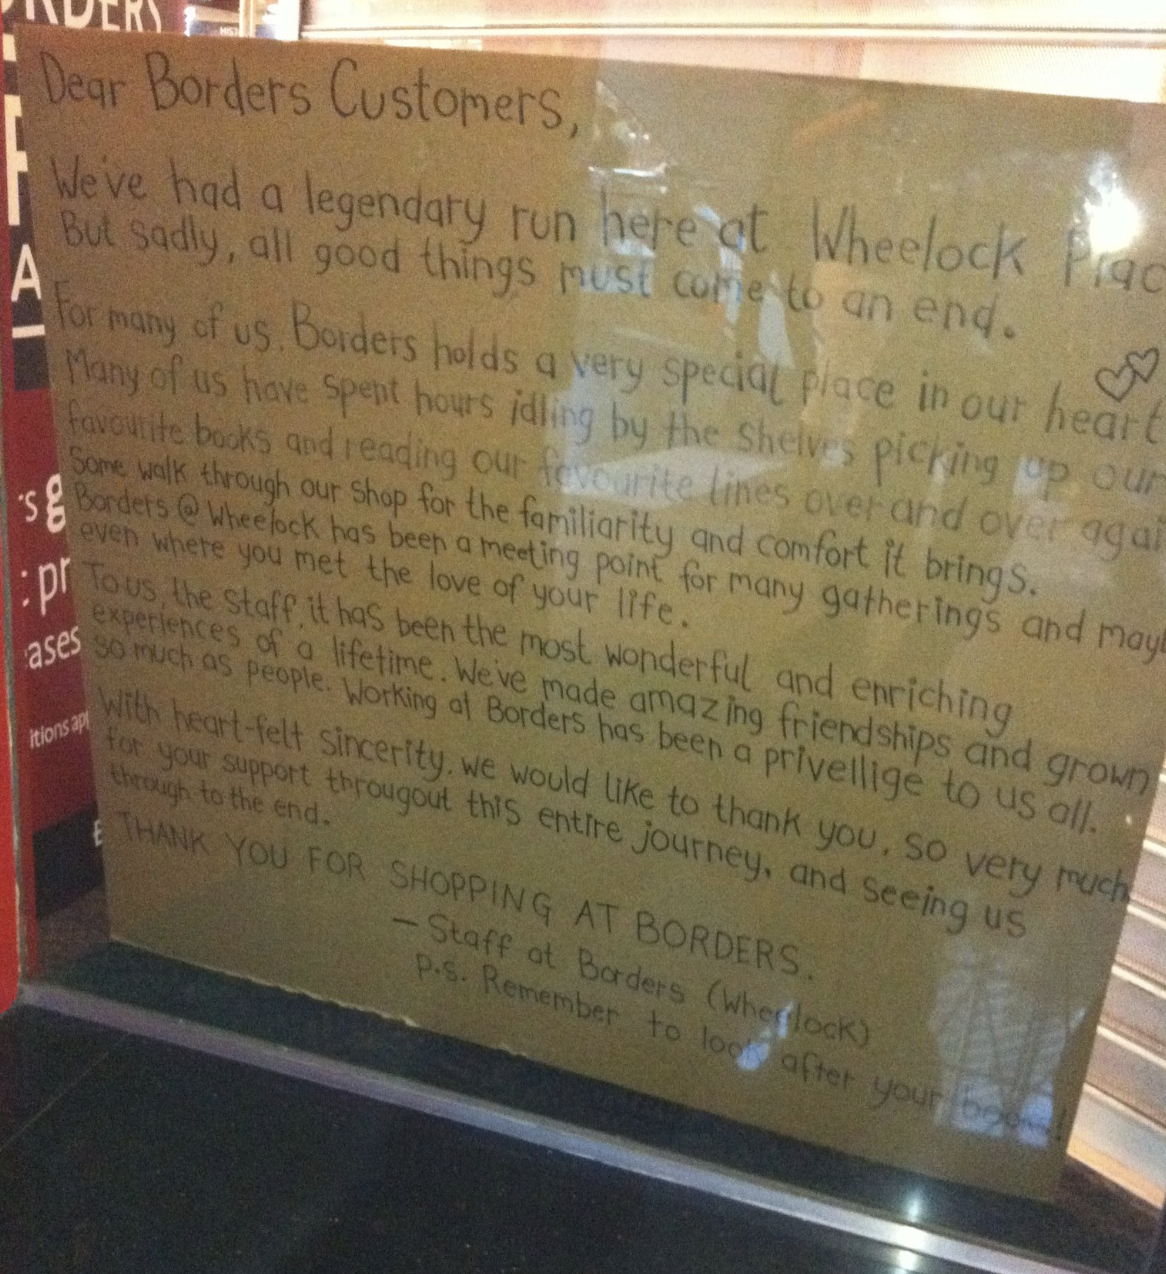 Dear Borders Customers,
We've had a legendary run here at Wheelock Plac
But sadly, all good things must come to an end.
For many of us, Borders holds a very special place in our heart
Many of us have spent hours idling by the shelves picking up our
favourite books and reading our favourite lines over and over agai
Some walk through our shop for the familiarity and comfort it brings.
Borders @ Wheelock has been a meeting point for many gatherings and mayb
even where you met the love of your life.
To us, the staff, it has been the most wonderful and enriching
experiences of a lifetime. We've made amazing friendships and grown
so much as people. Working at Borders has been a privellige to us all.
With heart-felt sincerity, we would like to thank you, so very much,
for your support througout this entire journey, and seeing us
through to the end.
THANK YOU FOR SHOPPING AT BORDERS.
- Staff at Borders (Wheelock)
P.S. Remember to look after your books!